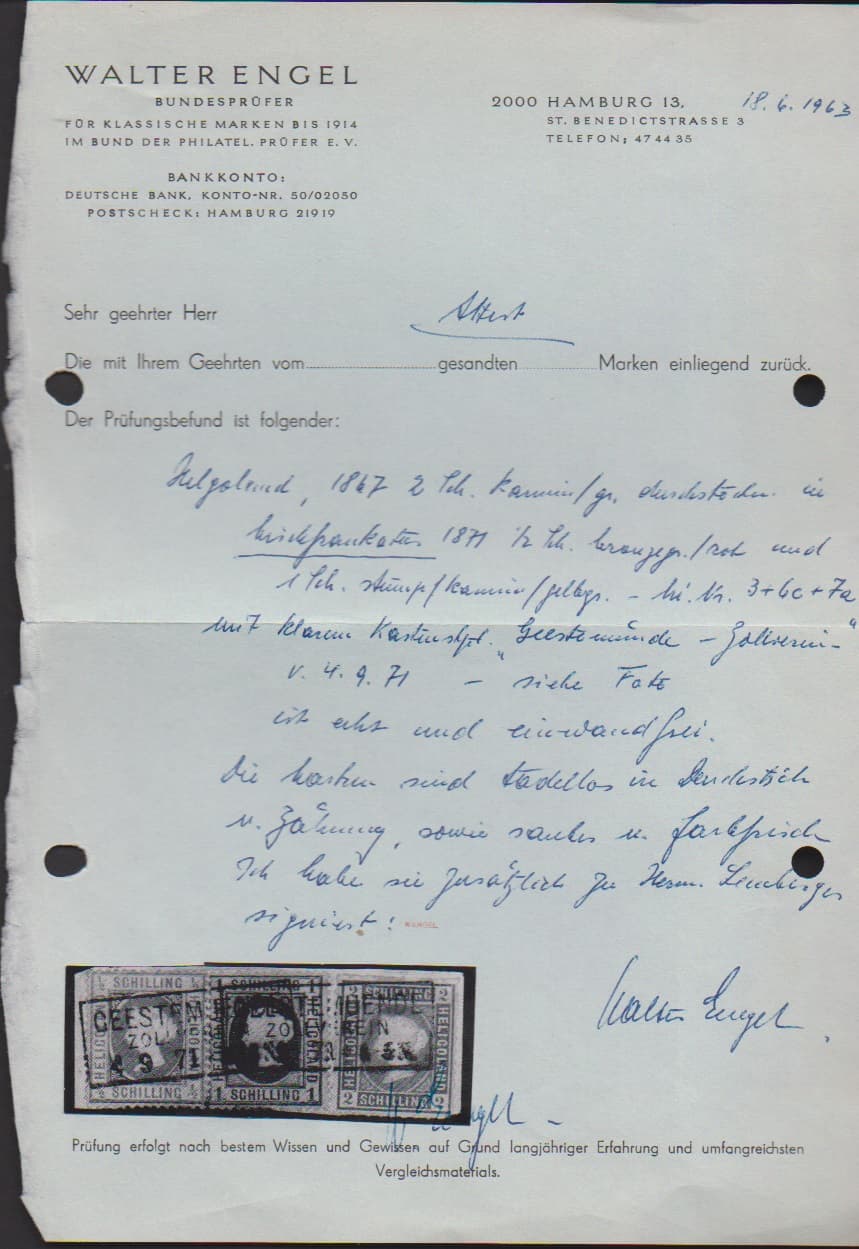 WALTER ENGEL
BUNDESPRÜFER
FÜR KLASSISCHE MARKEN BIS 1914
IM BUND DER PHILATEL. PRÜFER E. V.
BANKKONTO:
DEUTSCHE BANK, KONTO-NR. 50/02050
POSTSCHECK: HAMBURG 21919
2000 HAMBURG 13, 18.6.1963
ST. BENEDICTSTRASSE 3
TELEFON: 47 44 35
Sehr geehrter Herr
Attest
Die mit Ihrem Geehrten vom gesandten Marken einliegend zurück.
Der Prüfungsbefund ist folgender:
Helgoland, 1867 2 Sch. karmin/gr. durchstochen in
Mischfrankatur 1871 1/2 Sch. /rot und
1 Sch. stumpf/karmin/gelbgr. - Mi. Nr. 3+6c+7a
mit klarem Kastenstpl. "Geestemünde - Zollverein"
v. 4.9.71 - siehe Foto
ist echt und einwandfrei.
Die Marken sind tadellos in Durchstich
u. Zähnung, sowie sauber u. farbfrisch
Ich habe sie zusätzlich zu Herrn Lemberger
signiert!
W.ENGEL
Walter Engel
½ SCHILLING ½
HELIGOLAND
½ SCHILLING ½
1 SCHILLING 1
HELIGOLAND
1 SCHILLING 1
2 SCHILLING 2
HELIGOLAND
2 SCHILLING 2
GEESTEMUENDE
ZOLLVEREIN
4 9 71
Engel
Prüfung erfolgt nach bestem Wissen und Gewissen auf Grund langjähriger Erfahrung und umfangreichsten
Vergleichsmaterials.